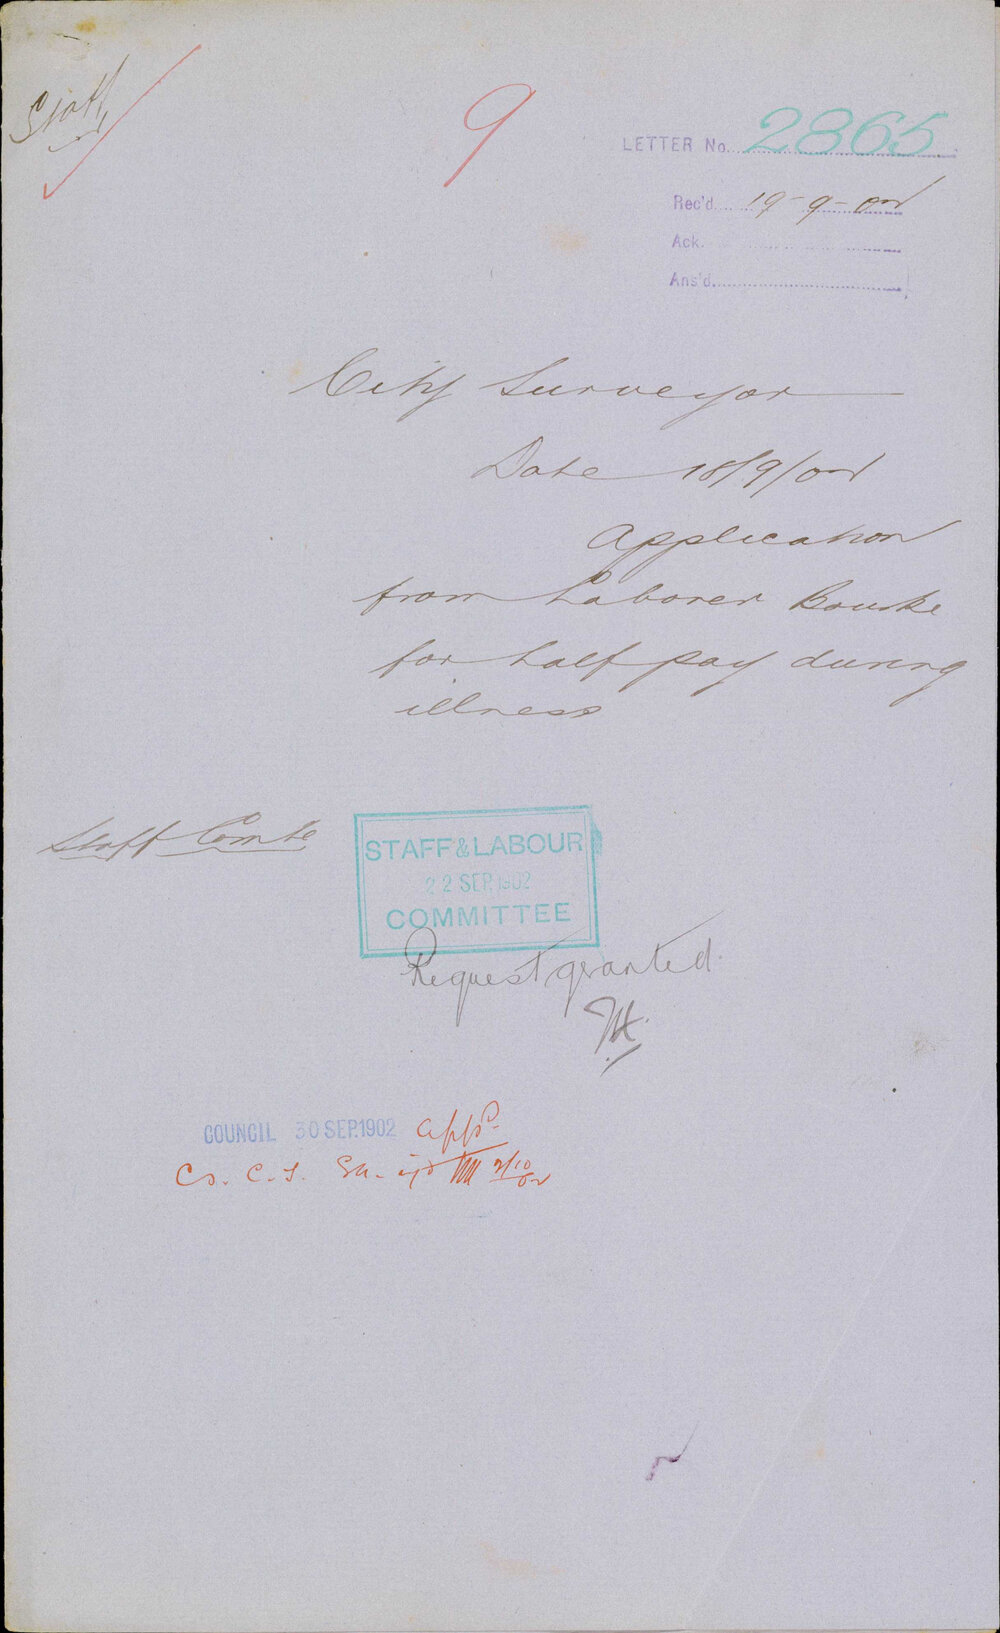 Staff
9
LETTER No. 2865
Rec'd. 19-9-02
Ack.
Ans'd.
City Surveyor
Date 18/9/02
Application
from Laborer Bourke
for half pay during
illness
Staff Comte
STAFF & LABOUR
22 SEP. 1902
COMMITTEE
Request granted.
COUNCIL 30 SEP. 1902 appd
2/10/02